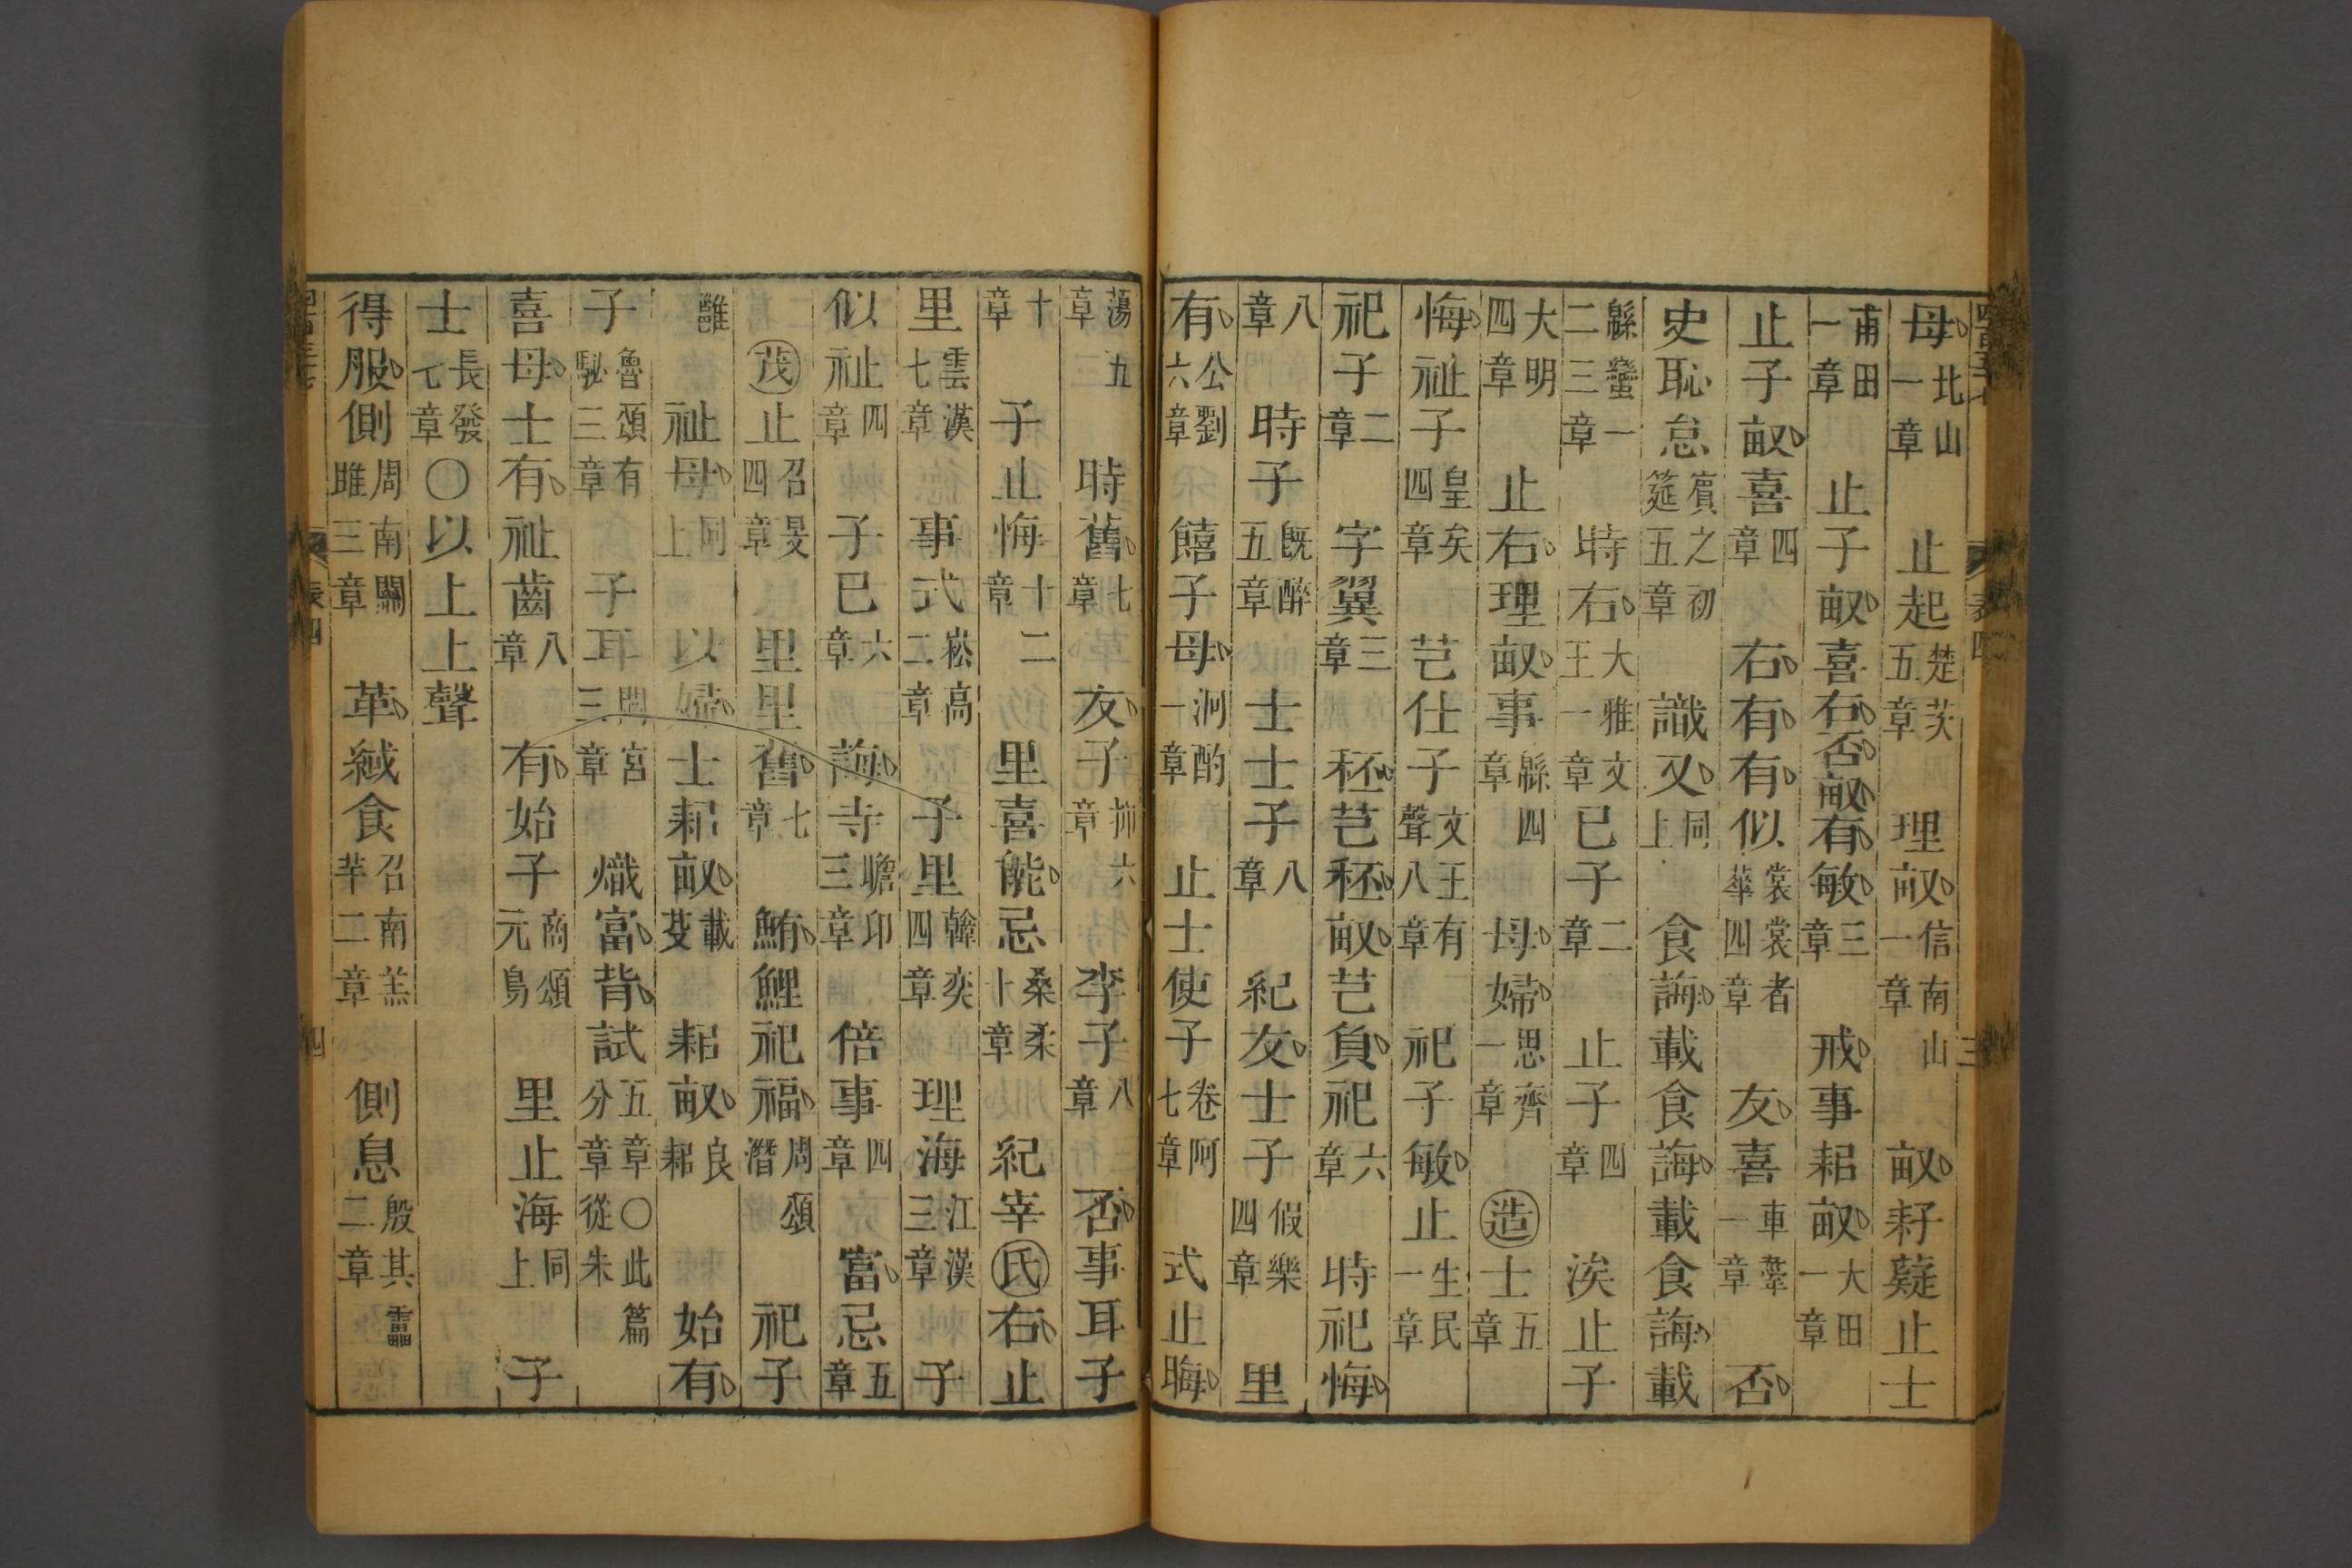 母北山一章　止起楚茨五章　理畝信南山一章　畝耔薿止士
甫田一章　止子畝喜右否畝有敏三章　戒事耜畝大田一章
止子畝喜四章　右有有似裳裳者華四章　友喜車舝一章　否
史恥怠賓之初筵五章　識又同上　食誨載食誨載食誨載
緜蠻一二三章　時右大雅文王一章　已子二章　止子四章　涘止子
大明四章　止右理畝事緜四章　母婦思齊一章　造士五章
悔祉子皇矣四章　芑仕子文王有聲八章　祀子敏止生民一章
祀子二章　字翼三章　秠芑秠畝芑負祀六章　時祀悔
八章　時子既醉五章　士士子八章　紀友士子假樂四章　里
有公劉六章　饎子母泂酌一章　止士使子卷阿七章　式止晦
蕩五章　時舊七章　友子抑六章　李子八章　否事耳子
十章　子止悔十二章　里喜能忌桑柔十章　紀宰氏右止
里雲漢七章　事式崧高二章　子里韓奕四章　理海江漢三章　子
似祉四章　子已六章　誨寺瞻卬三章　倍事四章　富忌五章
茂止召旻四章　里里舊七章　鮪鯉祀福周頌潛　祀子
雝　祉母同上　以婦士耜畝載芟　耜畝良耜　始有
子魯頌有駜三章　子耳閟宮三章　熾富背試五章〇此篇分章從朱
喜母士有祉齒八章　有始子商頌元鳥　里止海同上　子
士長發七章〇以上上聲
得服側周南關雎三章　革緎食召南羔羊二章　側息殷其靁二章